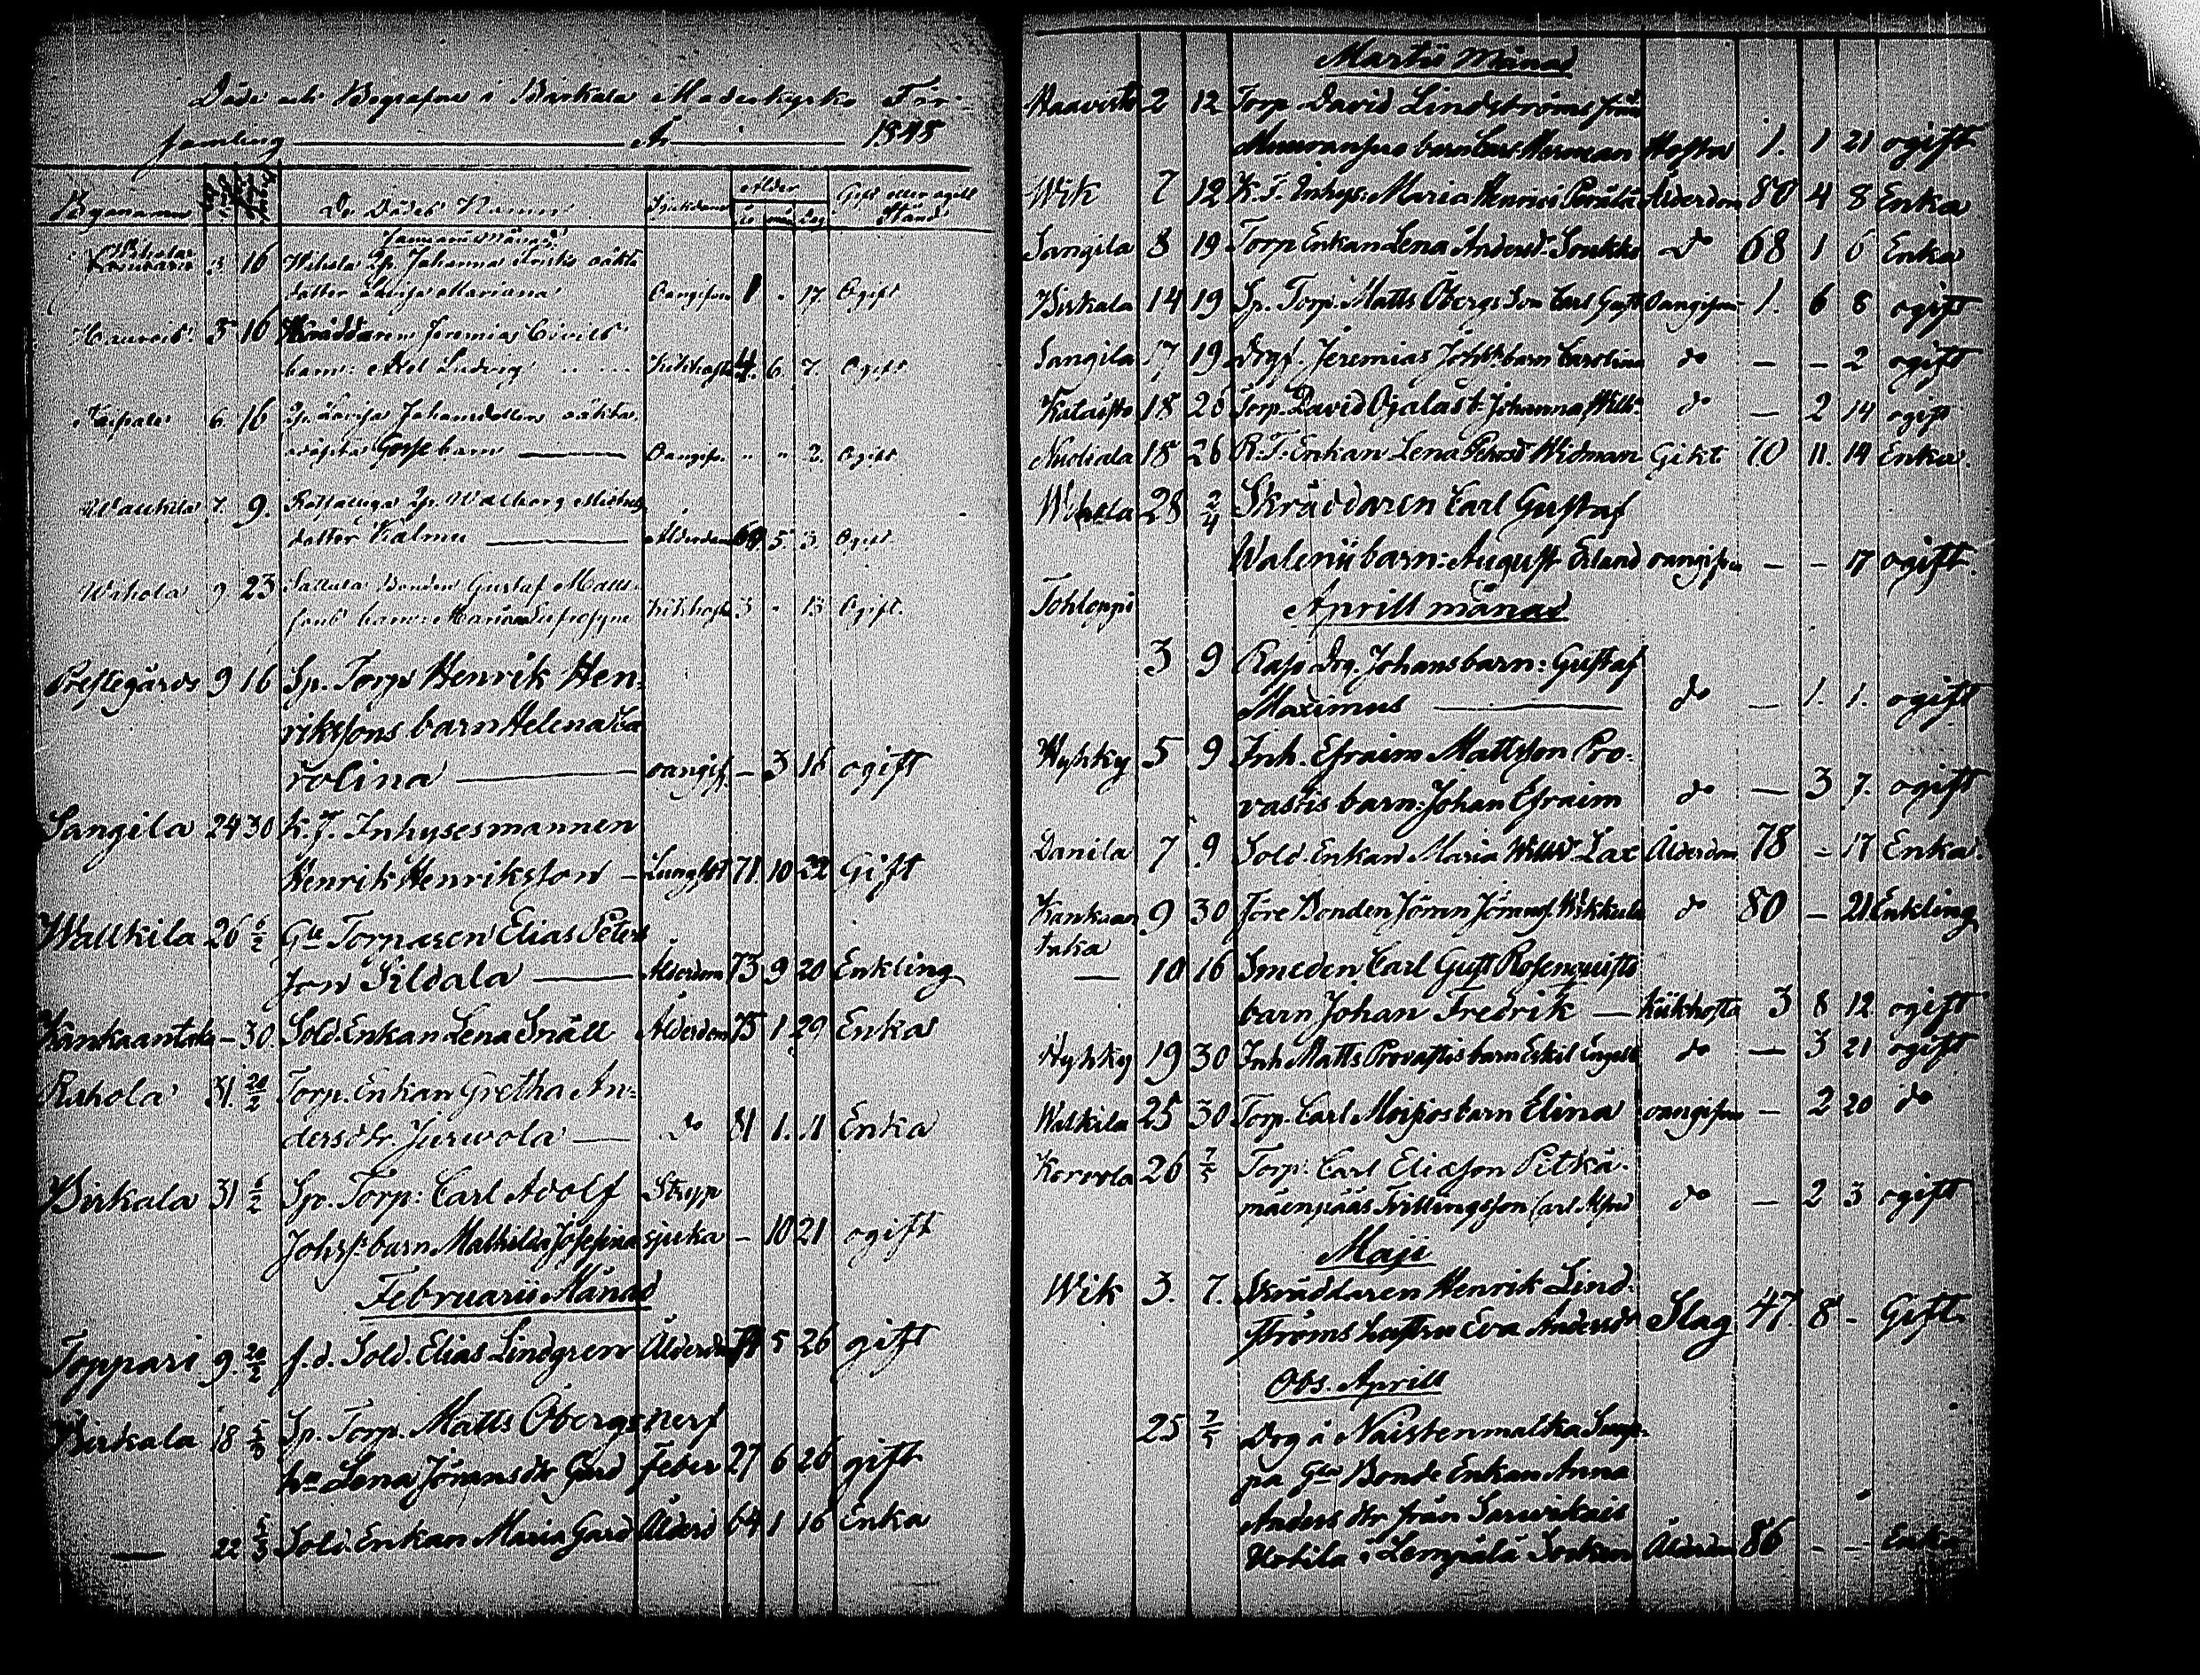 Döde och Begrafne i Birkala Moderkyrko För-
samling År 1848
Bynamn De Dödas Namn Sjukdom Ålder Gift eller ogift
år mån dag Stånd
Januarii Månad
Wihola 16 Johanna oäkta
dotter Mariana Oangifven 1 - 17 Ogift
5 16 Skräddaren Jeremias
barn: Axel Ludvig Kikhosta 4. 6. 7. Ogift
6. 16 Johansdotters oäkta
Gosse barn Oangif. " " 2. Ogift
Wallkila 7. 9. Walborg
dotter Kalmu Ålderdom 69 5. 3. Ogift
Wihola 9. 23 Bonden Gustaf Matts-
sons barn: Maria Kikhosta 3 - 13 Ogift.
Prestegårds 9 16 Sp. Torp Henrik Hen-
rikssons barn Helena Ca
rolina oangif. - 3 18 ogift
Sangila 24 30 K. J. Inhysesmannen
Henrik Henriksson - Lungsot 71 10 22 Gift
Wallkila 26 6/2 Gle Torparen Elias Peters
son Sildala Ålderdom 73 9 20 Enkling
Kankaantaka - 30 Sold. Enkan Lena Snäll Ålderdom 75 1 29 Enka
Rahola 31. 20/2 Torp. Enkan Gretha An-
dersdr. Juewola do 81 1. 11 Enka
Birkala 31 6/2 Sp. Torp: Carl Adolf Stryp
Johss. barn Mathilda Josefina sjuka - 10 21 ogift
Februarii Månad
Toppari 9. 20/2 f.d. Sold. Elias Lindgren Ålderdom 5 26 gift
Birkala 18 5/3 Sp. Torp. Matts Öbergs Nerf
hu Lena Jöransdr Gard Feber 27 6 26 gift
— 22 5/3 Sold. Enkan Maria Gard Ålderd 64 1 16 Enka
Martii Månad
Haavisto 2 12 Torp. David Lindströms från
barn Carl Herman Hosta 1. 1 21 ogift
Wik 7 12 K. J. Inhys. Maria Henrici Perälä Ålderdom 80 4 8 Enka
Sangila 8 19 Torp Enkan Lena Andersd. do 68 1 6 Enka
Birkala 14 19 Sp. Torp. Matts Öbergs Son Carl Gust Oangifven 1. 6 8 ogift
Sangila 17 19 Drg. Jeremias Johss. barn Carolina do — - 2 ogift
18 26 Torp. David Ojalas d. Johanna Wilh. do — 2 14 ogift
Nuoliala 18 26 R. T. Enkan Lena Petersd Widman Gikt. 70 11. 14 Enka.
Wihola 28 2/4 Skräddaren Carl Gustaf
Walenii barn: August Erland oangifven — - 17 ogift.
Tohloppi Aprill månad
3 9 Rasp drg. Johans barn: Gustaf
Maximus do — 1. 1. ogift
Hyhky 5 9 Inh. Efraim Mattsson Pro-
vastis barn: Johan Efraim do — 3 7. ogift
Danila 7 9 Sold. Enkan Maria Lax Ålderdom 78 - 17 Enka.
Kankaan 9 30 Före Bonden Jöran Jöranss. do 80 — 21 Enkling
taka
— 10 16 Smeden Carl Gust Rosenquists
barn Johan Fredrik — Kikhosta 3 8 12 ogift
Hyhky 19 30 Inh Matts Provastis barn Eskil Engelb do — 3 21 ogift
Walkila 25 30 Torp. Carl Moisios barn Elina oangifven — 2 20 do
Korvola 26 7/5 Torp. Carl Eliasson Pitkä-
mäenpääs Tvillingsson Carl Alfred do — 2 3 ogift
Maji
Wik 3. 7. Skräddaren Henrik Lind-
ströms hustru Eva Andersd Slag 47. 8 - Gift
Obs. Aprill
25 7/5 Dog i Naistenmatka
pa Gle Bonde Enkan Anna
Anders dr. från Sarvikais
Hotila i Lempälä Socken Ålderdom 86 - — Enka